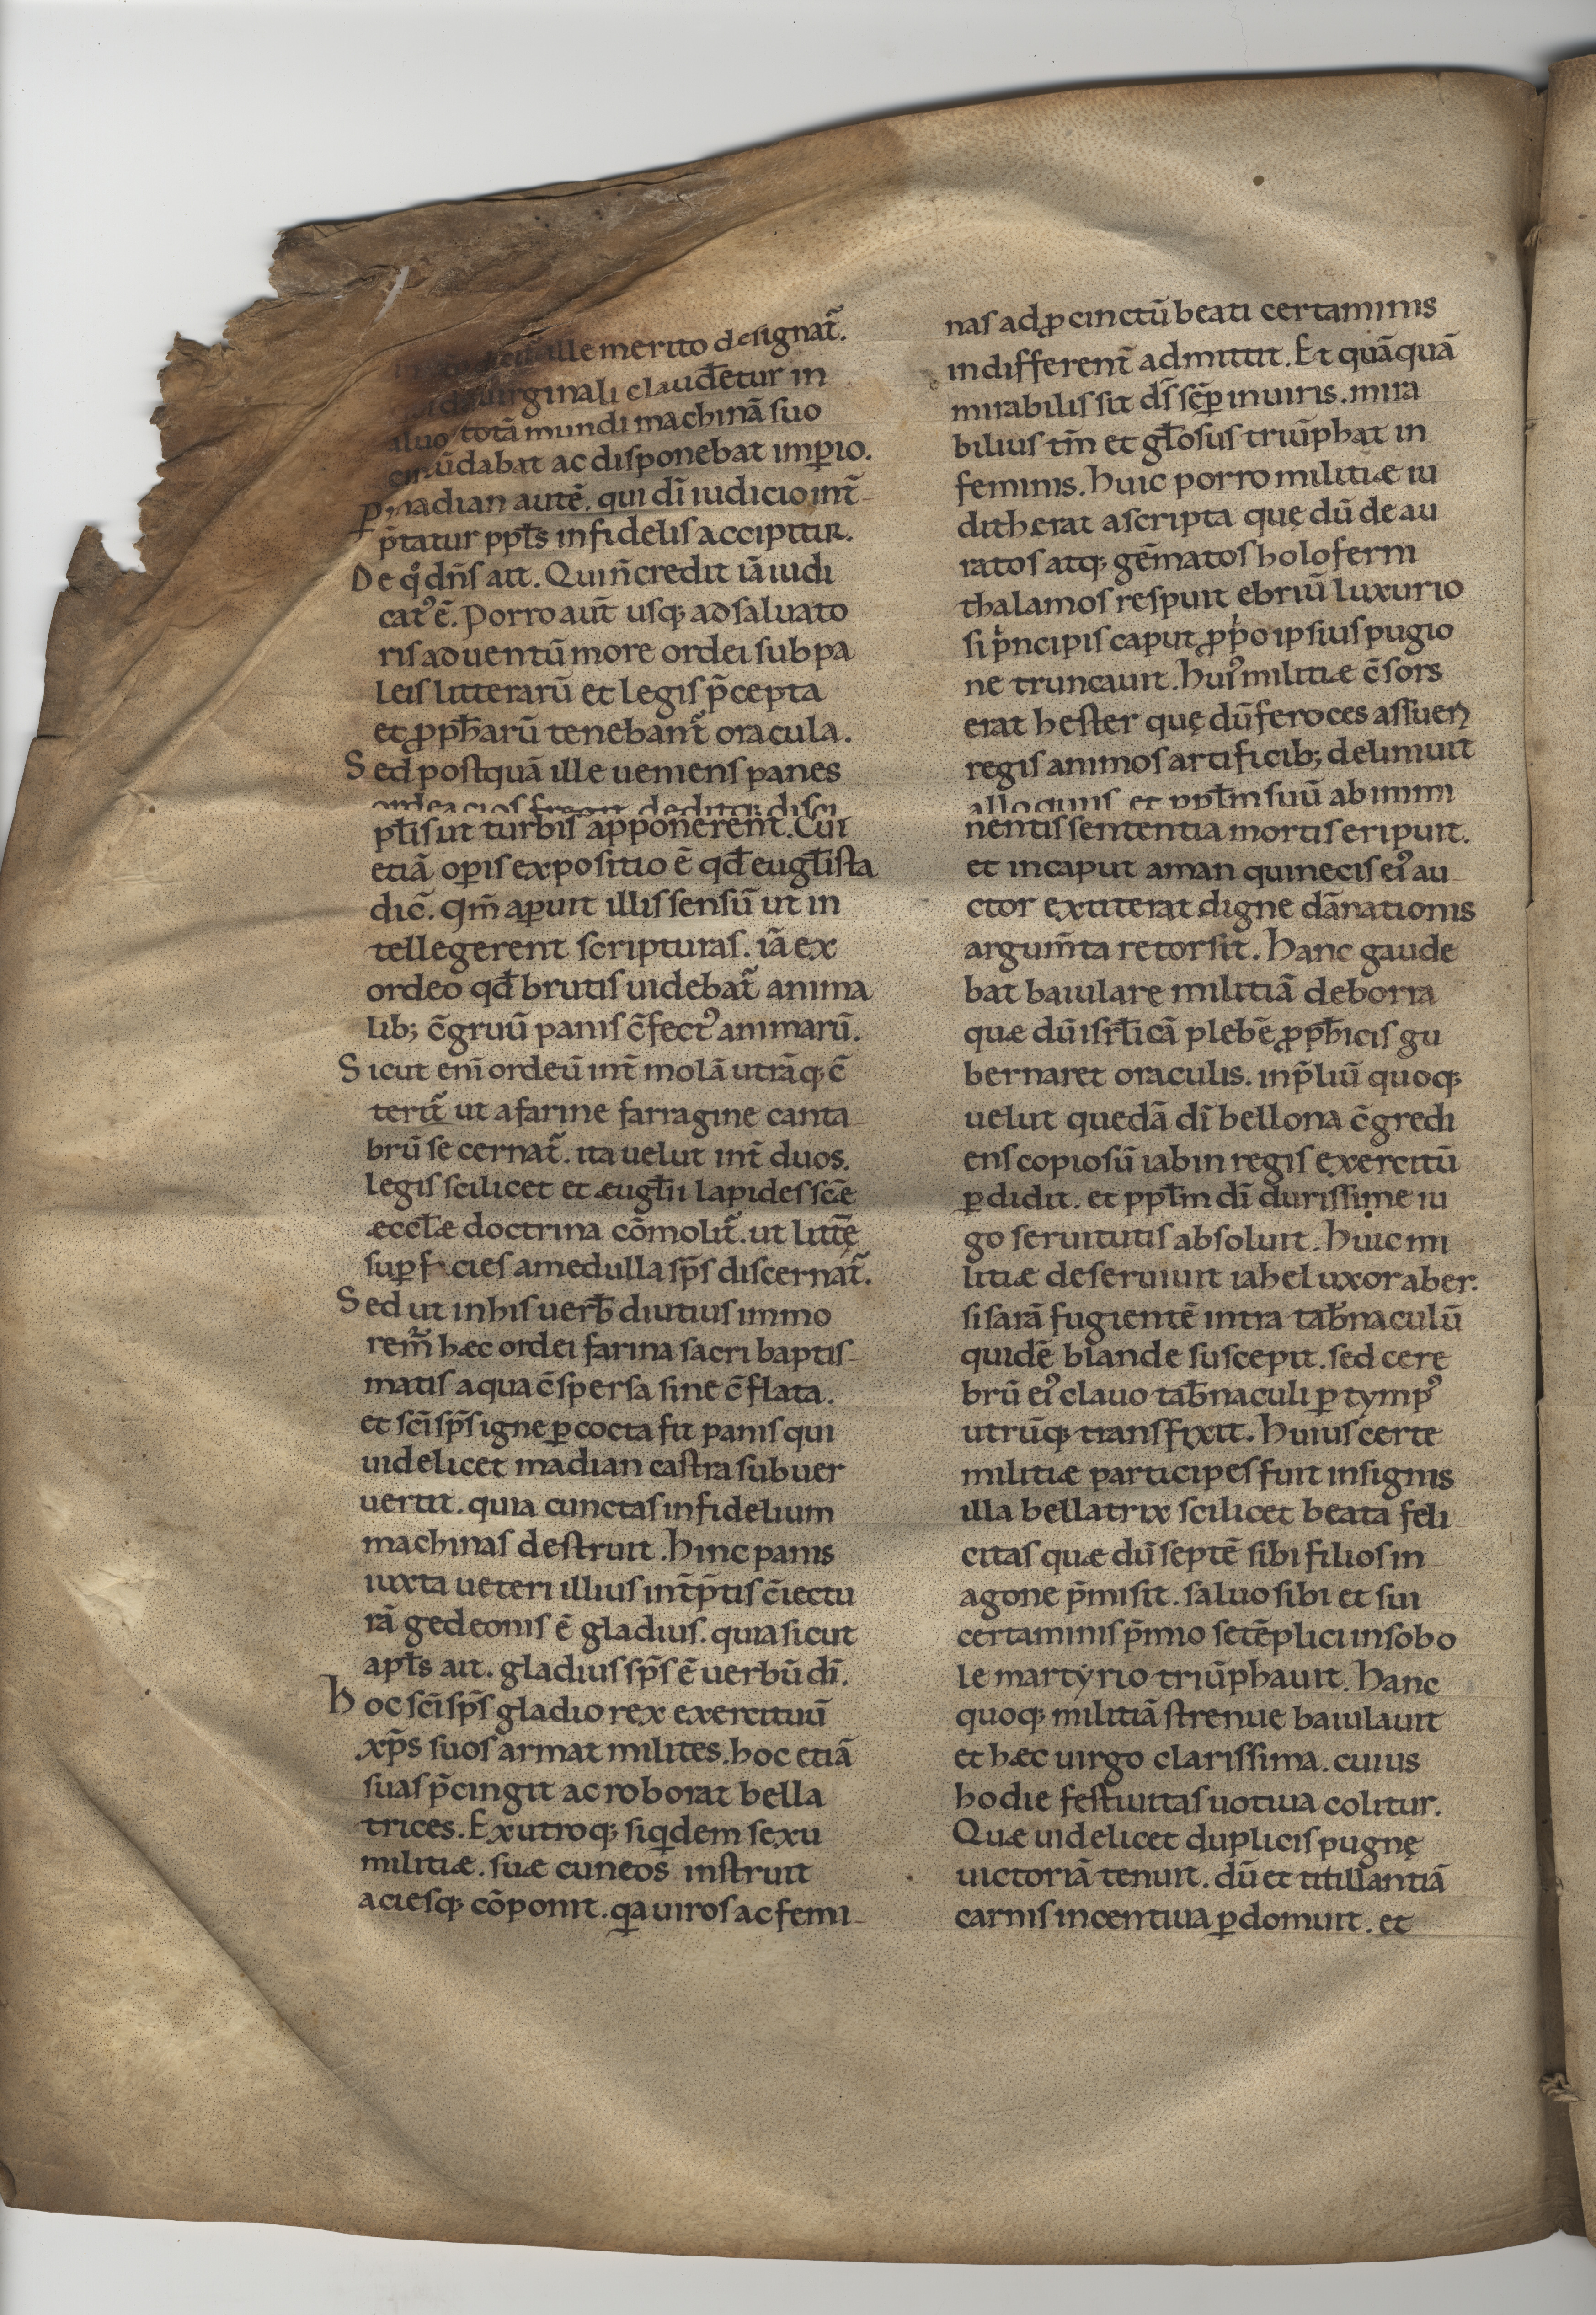 ille merito designat̃.
uirginali claudetur in
aluo totā mundi machinā suo
cir̄cūdabat ac disponebat imꝑio.
ꝑ madian autē. qui dī iudicio int̄-
p̄tatur ppl̄s infidelis accipitur.
De qͦ dn̄s ait. Qui n̄ credit iā iudi
catꝰ ē. Porro aut̄ usq; ad saluato
ris aduentū more ordei sub pa
leis litterarū et legis p̄cepta
et ꝓph̄arū tenebant̃ oracula.
Sed postquā ille ueniens panes
ordeacios fregit deditq; disci
pl̄is ut turbis apponerent̄. Cui
etiā oꝑis expositio ē qđ eugl̄ista
dic̄. Qm̄ aꝑuit illis sensū ut in
tellegerent scripturas. iā ex
ordeo qđ brutis uidebat̃ anima
lib; c̄gruū panis c̄fectꝰ animarū.
Sicut eni ordeū int̄ molā utrāq; c̄
terit̃ ut a farine farragine canta-
brū secernat̃. ita uelut int̄ duos.
legis scilicet et æugl̄ii lapides sc̄e
æccl̄æ doctrina cōmolit̃. ut litt̄ę
suꝑficies a medulla sp̄s discernat̃.
Sed ut in his uerb̄ diutius immo
rem̃ hæc ordei farina sacri baptis-
matis aqua c̄spersa sine c̄flata.
et sc̄i sp̄s igne ꝑcocta fit panis qui
uidelicet madian castra subuer
uertit. quia cunctas infidelium
machinas destruit. Hinc panis
iuxta ueteri illius int̄p̄tis c̄iectu
rā gedeonis ē gladius. quia sicut
apl̄s ait. gladius sp̄s ē uerbū dī.
Hoc sc̄i sp̄s gladio rex exercituū
xp̄s suos armat milites. hoc etiā
suas p̄cingit ac roborat bella
trices. Ex utroq; siqͥdem sexu
militiæ. suæ cuneos instruit
aciesq; cōponit. qͣa uiros ac femi-
nas ad ꝓcinctū beati certaminis
indifferent̄ admittit. Et quāquā
mirabilis sit dꝰ̄s sēꝑ in uiris. mira
bilius tm̄ et gl̄osus triūphat in
feminis. Huic porro militiæ iu
dith erat ascripta quę dū deau
ratos atq; gēmatos holoferni
thalamos respuit ebriū luxurio
si pͥncipis caput ꝓpͥo ipsius pugio
ne truncauit. Huiꝰ militiæ c̄sors
erat hester quę dū feroces assueꝝ
regis animos artificib; deliniuit
alloquiis et ppl̄m suū ab immi
nentis sententia mortis eripuit.
et in caput aman qui necis eiꝰ au-
ctor extiterat digne dānationis
argum̄ta retorsit. Hanc gaude
bat baiulare militiā deborra
quæ dū isrl̄icā plebē ꝓph̄icis gu
bernaret oraculis. in p̄liū quoq;
uelut quedā dī bellona c̄gredi
ens copiosū iabin regis exercitū
ꝑdidit. et ppl̄m dī durissime iu
go seruitutis absoluit. Huic mi
litiæ deseruiuit iahel uxor aber.
sisarā fugientē intra tab̄naculū
quidē blande suscepit. sed cere
brū eiꝰ clauo tab̄naculi ꝑ tympꝰ
utrūq; transfixit. Huius certe
militiæ partic­ipes fuit insignis
illa bellatrix scilicet beata feli
citas quæ dū septē sibi filios in
agone p̄misit. saluo sibi et sui
certaminis p̄mio setēplici in sobo
le martyrio triūphauit. Hanc
quoq; militiā strenue baiulauit
et hæc uirgo clarissima. cuius
hodie festiuitas uotiua colitur.
Quæ uidelicet duplicis pugnę
uictoriā tenuit. dū et titillantiā
carnis incentiua ꝑdomuit. et